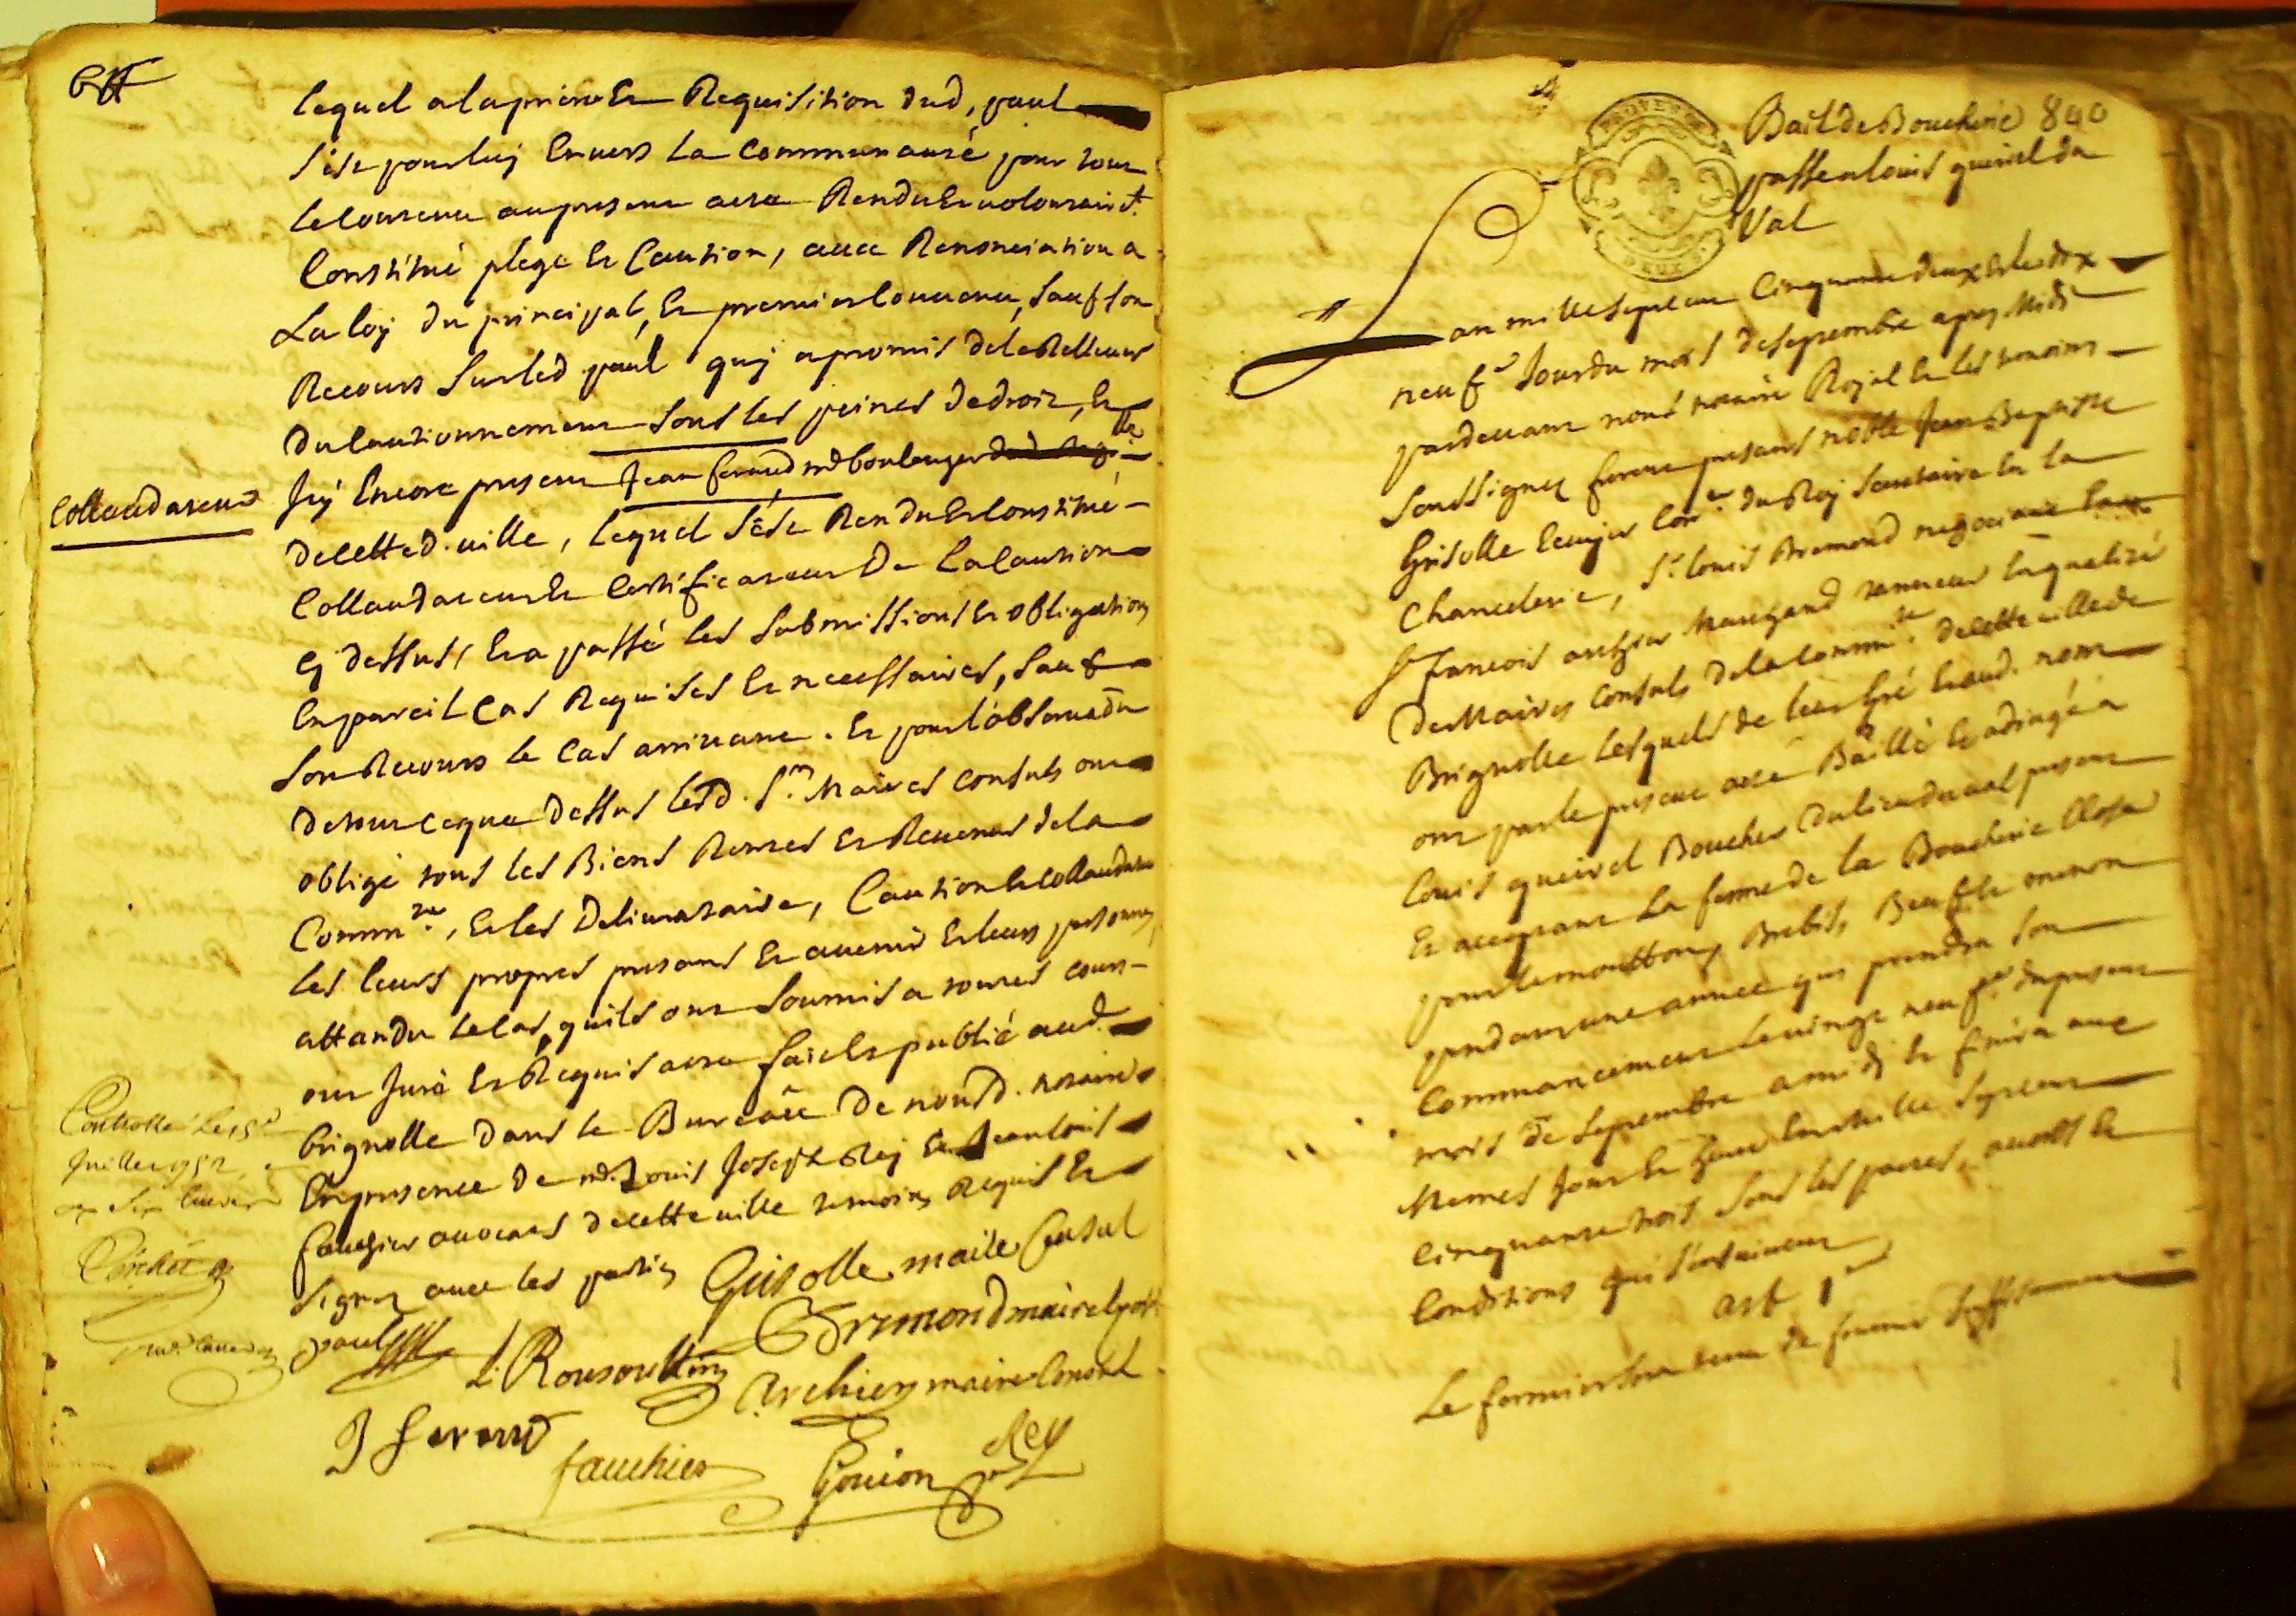 lequel a la priere et Requisition dud. paul
s'est pour luy Envers La Communauté pour tout
le contenu au present acte Rendu Et volontairemt.
Constitué plege et Caution, avec Renonciation a
La loy du principal, Et premier Convenu, sauf son
Recours sur led paul quy a promis de le Rellever
du Cautionnement sous les peines de droit, Et
Collaudateur
Icy Encore present Jean feraud md boulanger
de cette d. ville, lequel s'est Rendu Et Constitué
Collaudateur Et Certificateur De La Caution
cy dessus, Et a passé les submissions Et obligations
En pareil Cas Requises Et necessaires, sauf
son Recours le Cas arrivant. Et pour l'observaon
de tout ce que dessus lesd. Srs. Maires Consuls ont
obligé tous les Biens Rentes Et Revenus de la
Commté., Et les Delivrataire, Caution Et Collaudateur
les leurs propres presents Et avenir Et leurs personnes
attandu le Cas, quils ont soumis a toutes cours
ont Juré Et Requis acte fait Et publié aud.
brignolle dans le Bureau de nousd. notaire
En presence de me. Louis Joseph Rey Et Jean louis
fauchier avocats de cette ville temoins Requis Et
signez avec les parties
Controllé le 15e
Juillet 1752
Grisolle maire Consul
paul
L. Rousoullin
Bremond maire Consul
Archier maire Consul
J feraud
fauchier
Gouion
Rey
Bail de Boucherie 840
passe a louis queirel du
Val
PROVENCE
DEUX S.
L'an mille sept cent Cinquante deux Et le dix
neufe Jour du mois de septembre apres Midi
pardevant nous notaire Royal Et les temoins
soussignez furent presants noble Jean Baptiste
Grisolle Ecuyer Conr. du Roy secretaire En la
Chancelerie, Sr. louis Bremond negociant
Sr francois archier Marchand tanneur En qualité
de Maires Consuls de la Commté. de cette ville de
Brignolle Lesquels de leur Gré Et aud. nom
ont par le present acte Baillé Et adirigé a
louis queirel Boucher du lieu du val present
Et acceptant La ferme de la Boucherie Close
pour le mouttons, Brebis, Beuf Et menon
pendant une année quy prendra son
Commancement le vingt neufe. du present
mois de septembre a midi Et finira a
Memes Jour Et heure En mille sept cent
Cinquante trois sous les pactes, accords Et
Conditions qui s'ensuivent
art 1er
Le fermier sera tenu de fournir suffisament